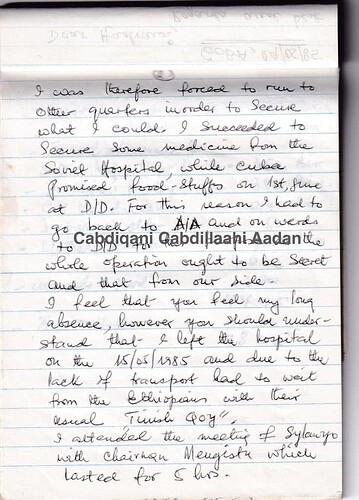 I was therefore forced to run to
other quarters inorder to secure
what I could. I succeeded to
secure some medicine from the
Soviet Hospital, while Cuba
promised food-stuffs on 1st, June
at D/D. For this reason I had to
go back to A/A and on words
to D/D
Cabdiqani Cabdillaahi Aadan
the
whole operation ought to be secret
and that from our side.
I feel that you feel my long
absence, however you should under-
stand that I left the hospital
on the 15/05/1985 and due to the
lack of transport had to wait
from the Ethiopians with their
usual "Tinish Qoy".
I attended the meeting of Sylanyo
with chairman Mengistu which
lasted for 5 hrs.